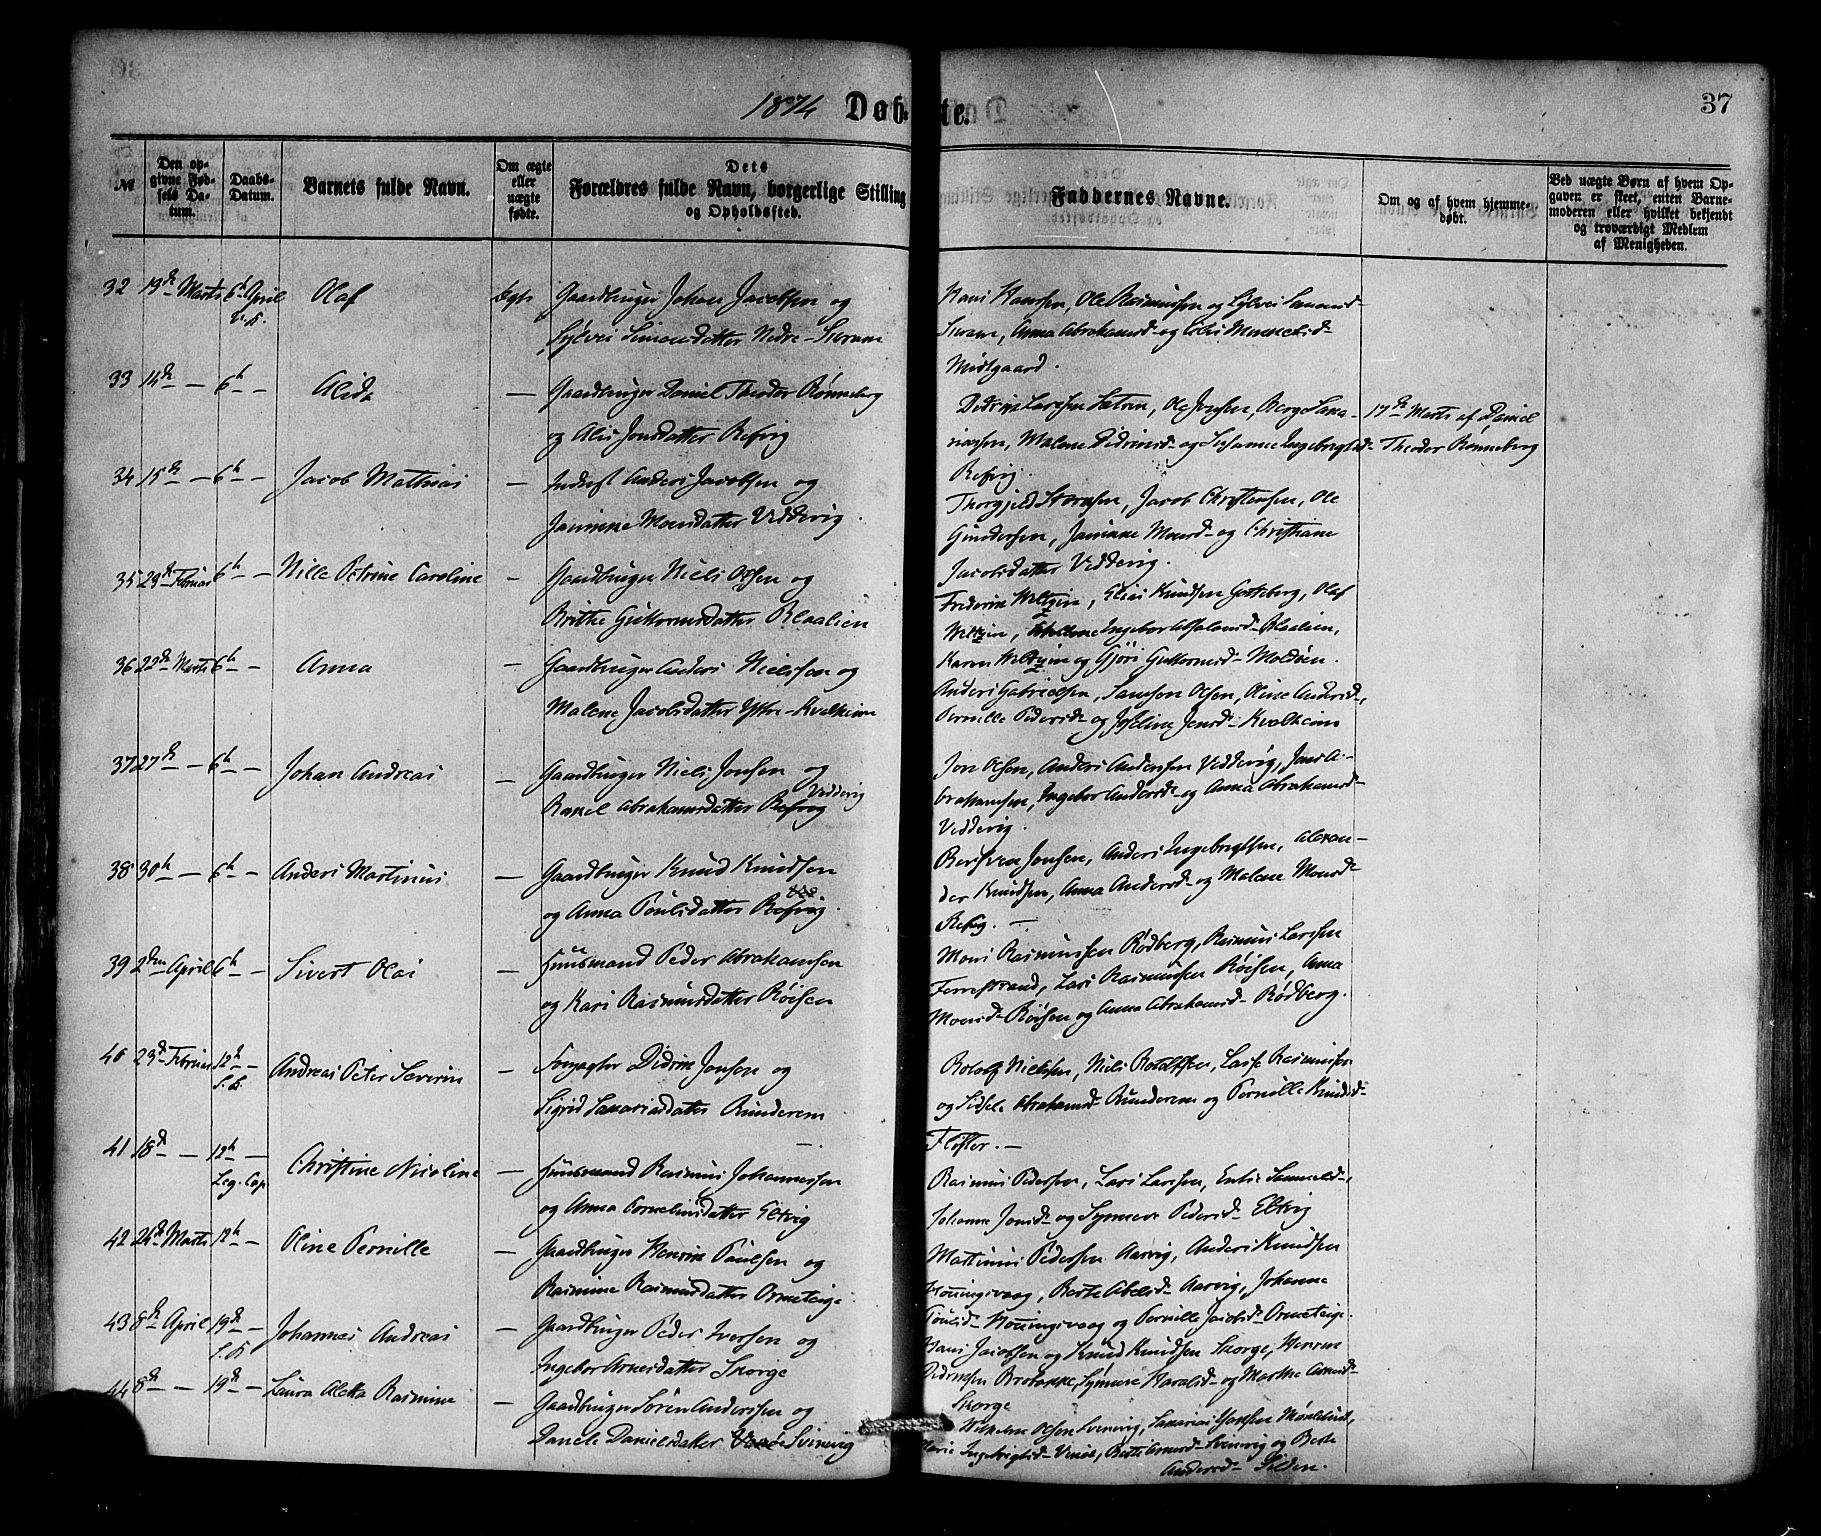 1874 Døb- te.
37
№
Den opgivne Fødsels Datum.
Daabs-Datum.
Barnets fulde Navn.
Om ægte eller uægte fødte.
Dets
Forældres fulde Navn, borgerlige Stilling
og Opholdssted.
Faddernes Navne.
Om og af hvem hjemmedøbt.
Ved uægte Børn af hvem Opgaven er skeet, enten Barnemoderen eller hvilket bekjendt og troværdigt Medlem af Menigheden.
32 19de Marts 6te April Olaf Ægte Gaardbruger Johan Jacobsen og
Sylvei Simonsdatter Nedre-
Hans Hanssen, Ole Rasmussen og Sylvei
Anna Abrahamsd- og
Midtgaard.
33 14de — 6te — Alida — Gaardbruger Daniel Theodor Rønneberg
og Alis Jonsdatter Refvig
Didrik Larssen Sætren, Ole Jonsen, Berg Saka-
riassen, Malene Didriksd- og Johanne Ingebrigtsd-
Refvig.
17de Marts af Daniel
Theodor Rønneberg
34 15de — 6te — Jacob Mathias — Inderst Anders Jacobsen og
Jasinne Monsdatter Veddevig.
Thorgjeld Størksen, Jacob Christensen, Ole
Gundersen, Jasinne Monsd- og Christiane
Jacobsdatter Veddevig.
35 23de Februar 6te — Nille Petrine Caroline — Gaardbruger Niels Olsen og
Brithe Guttormsdatter Blaalien
Frederik Weltzin, Elias Knudsen Gotteberg, Olaf
Weltzin, Ingebor Absalonsd- Blaalien,
Karen Weltzin og Gjøri Guttormsd- Moldøen.
36 22de Marts 6te — Anna — Gaardbruger Anders Nielssen og
Malene Jacobsdatter Yttre-Kvalheim
Anders Gabrielsen, Samson Olsen, Oline Andersd-,
Pernille Pedersd- og Josefine Jensd- Kvalheim
37 27de — 6te — Johan Andreas — Gaardbruger Niels Jonsen og
Rakel Abrahamsdatter Refvig Veddevig
Jon Olsen, Anders Anderssen Veddevig, Jens A-
brahamsen, Ingebor Andersd- og Anna Abrahamsd-
Veddevig.
38 30te — 6te — Anders Martinus — Gaardbruger Knud Knudsen
og Anna Poulsdatter Refvig.
Jonsen, Anders Ingebrigtsen, Alexan-
der Knudsen, Anna Andersd- og Malene Monsd-
Refvig. —
39 2den April 6te — Sivert Olai — Huusmand Peder Abrahamsen
og Kari Rasmusdatter Røisen
Mons Rasmussen Rødberg, Rasmus Larssen
Fernestrand, Lars Rasmussen Røisen, Anna
Monsd- Røisen og Anna Abrahamsd- Rødberg.
40 23de Februar 12te — Andreas Peter Severin — Forpagter Didrik Jonsen og
Sigrid Sakariasdatter Runderem
Rotolf Nielsen, Niels Rotolfsen, Lasse Rasmussen
og Sidsele Abrahamsd- Runderem og Pernille Knudsd-
Flister. —
41 18de — 12te — Christine Nicoline — Huusmand Rasmus Johannessen
og Anna Corneliusdatter Eltvig
Rasmus Pederssen, Lars Larssen, Samuelsd-,
Johanne Jonsd- og Synneve Pedersd- Eltvig
42 26de Marts 12te — Oline Pernille — Gaardbruger Henrik Poulsen og
Rasmine Rasmusdatter Ormeteige.
Martinus Pedersen Aarvig, Anders Knudsen
Honningsvaag, Berte Abelsd- Aarvig, Johanne
Poulsd- Honningsvaag og Pernille Jacobsd- Ormeteige.
43 8de April 19de — Johannes Andreas — Gaardbruger Peder Iversen og
Ingebor Arnesdatter Skorge
Hans Jacobsen og Knud Knudsen Skorge, Henrik
Didriksen Brobakke, Synneve Haralsd- og Marthe
Skorge
44 8de — 19de — Laura Aletta Rasmine — Gaardbruger Søren Anderssen og
Danele Danielsdatter Svinvig
Wilhelm Olsen Svinvig, Sakarias
Ingebrigtsd- Svinvig og Berte
Andersd- Silden.